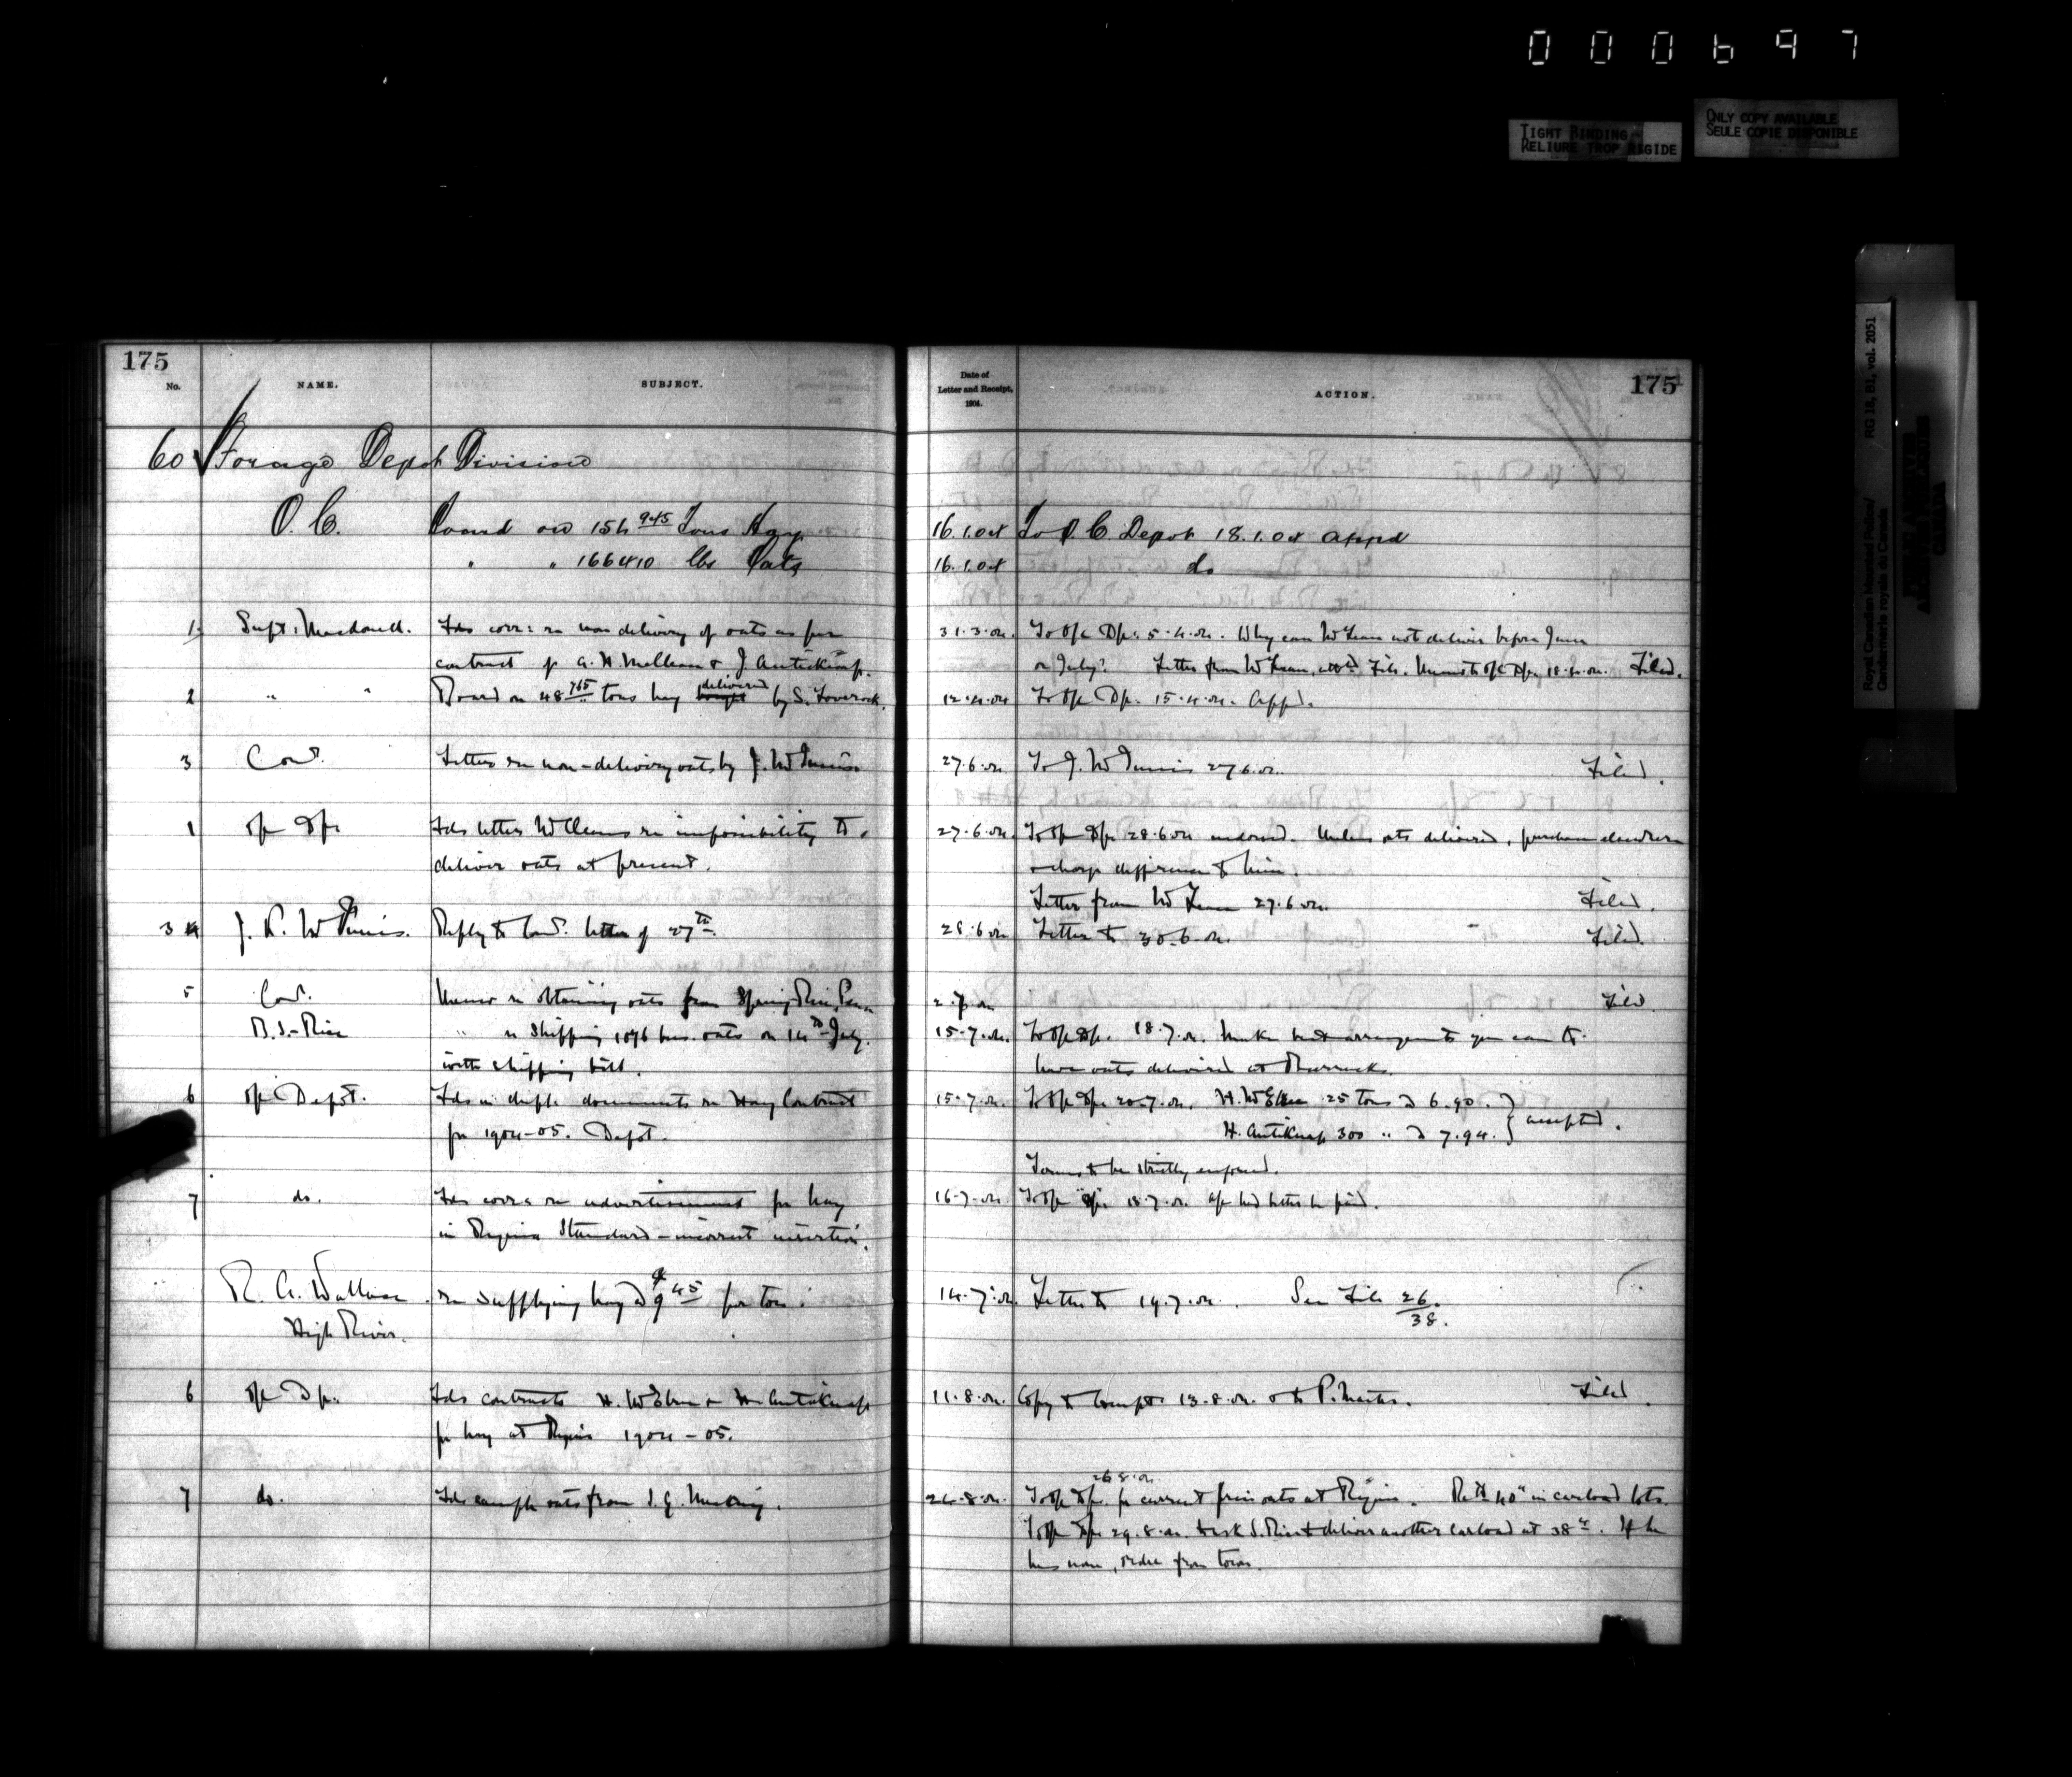 000697
TIGHT BINDING
RELIURE TROP RIGIDE
ONLY COPY AVAILABLE
SEULE COPIE DISPONIBLE
Royal Canadian Mounted Police/
Gendarmerie royale du Canada
RG 18, B1, vol. 2051
PUBLIC ARCHIVES
ARCHIVES PUBLIQUES
CANADA
175
No. NAME. SUBJECT.
Date of
Letter and Receipt,
1904.
ACTION.
175
60 Forage Depot Division
O. C. Board on 154 945 Tons Hay 16.1.04 To O C Depot 18.1.04 appd
" " 166410 lbs Oats 16.1.04 do
1 Supt: Macdonell. Fds corr: re non delivery of oats as per 31.3.04. To O/C Dp. 5.4.04. Why can McLean not deliver before June
contract J. Antiknap. or July? Letter from McLean, File. Memo to O/C Dp. 18.4.04. Filed.
2 " " Board on 48 765 tons hay bought delivered by S. Loverock. 12.4.04 To O/C Dp. 15.4.04. Appd.
3 Com'r. Letter re non-delivery oats by J. McInnis 27.6.04. To J. McInnis 27.6.04. Filed.
1 O/C Dp. Fds letter McLean re impossibility to 27.6.04. To O/C Dp. 28.6.04 endorsed. Unless oats delivered, purchase elsewhere
deliver oats at present. & charge difference to him.
Letter from McLean 27.6.04. Filed.
3 4 J. K. McInnis. Reply to Com'r. letter of 27th. 28.6.04 Letter to 30.6.04. Filed.
5 Com'r. Memo re obtaining oats from 2.7.04 Filed
B. S. Rice " re shipping 1096 bus. oats on 14th July. 15.7.04. To O/C Dp. 18.7.04. Make best arrangements you can to
with shipping bill. have oats delivered at Barracks.
6 O/C Depot. Fds in duple documents re Hay Contract 15.7.04. To O/C Dp. 20.7.04. 25 tons @ 6.90.
for 1904-05. Depot. H. Antiknap 300 " @ 7.94. } accepted.
Terms to be strictly enforced.
7 do. Fds corr: re advertisement for hay 16.7.04. To O/C Dp. 18.7.04.
in Regina Standard - incorrect insertion.
R. A. Wallace re supplying hay @ 9 45 per ton. 14.7.04. Letter to 19.7.04. See File 26/38.
High River.
6 O/C Dp. Fds contracts & H. Antiknap 11.8.04. Copy to Compt. 13.8.04. Filed.
for hay at Regina 1904-05.
26.8.04.
7 do. Fds sample oats from 24.8.04. To O/C Dp. for current price oats at Regina. in carload lots.
To O/C Dp. 29.8.04. to ask S. Rice to deliver another carload at 38c. If he
has none, order from town.